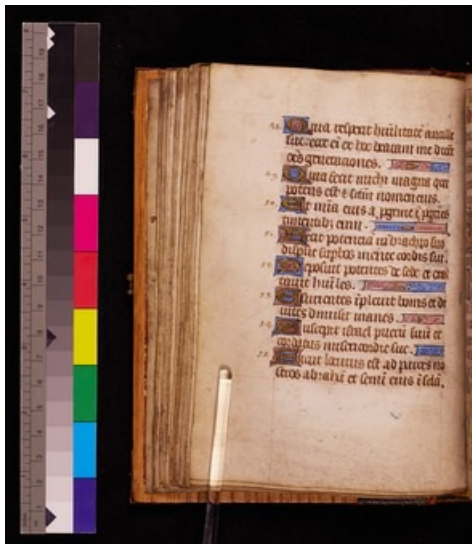 Quia respexit humilitatem ancille
sue: ecce enim ex hoc beatam me dicent
omnes generationes.
49. Quia fecit michi magna qui
potens est & sanctum nomen eius.
50. Et mia eius a pgenie i pgenies
timentibus eum.
51. Fecit potentiam in brachio suo
dispsit supbos mente cordis sui.
52. Deposuit potentes de sede et exal
tauit huiles.
53. Esurientes ipleuit bonis et di
uites dimisit inanes.
54. Suscepit israel puerum suum et
cordatus misericordie sue.
55. Sicut locutus est ad patres no
stros abraham et semini eius i sela.